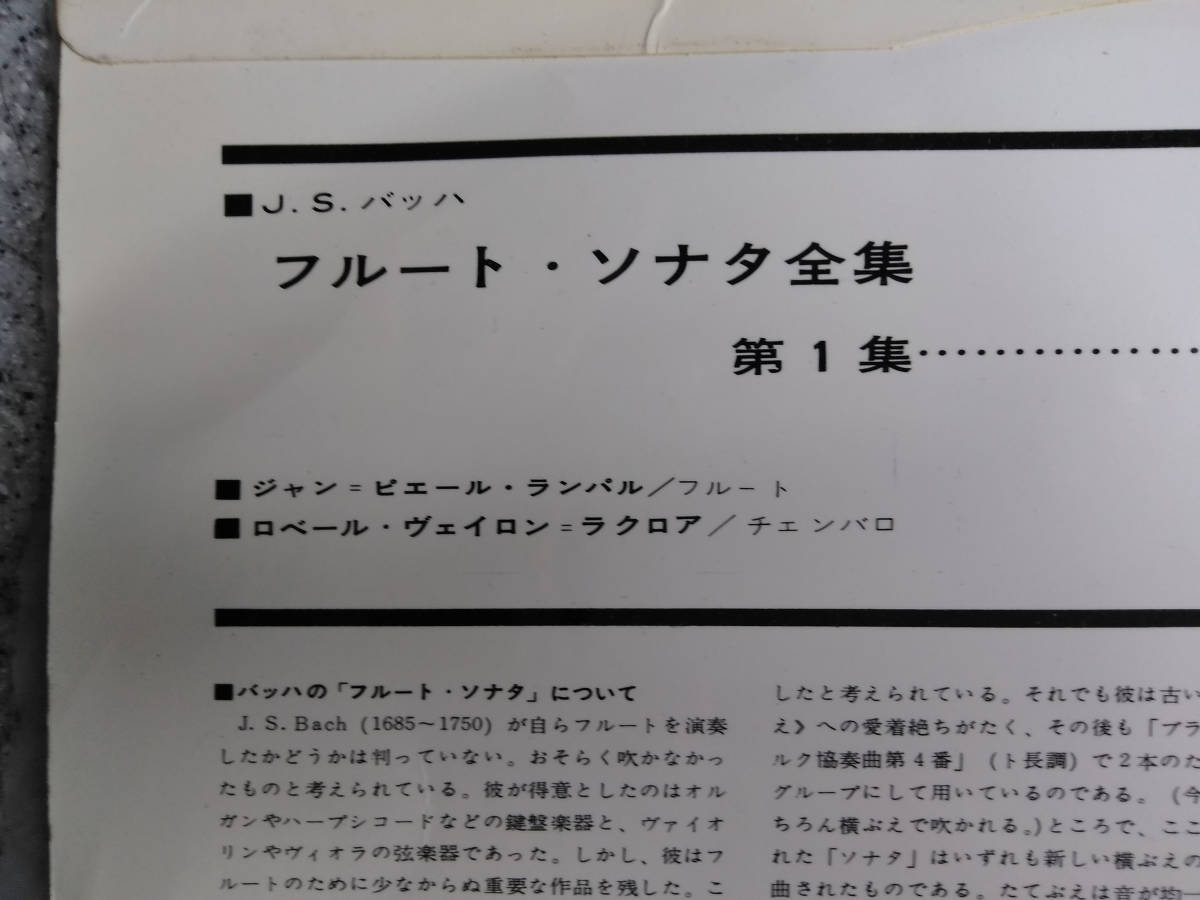 ■J.S.バッハ
フルート・ソナタ全集
第1集………………
■ジャン=ピエール・ランパル/フルート
■ロベール・ヴェイロン=ラクロア/チェンバロ
■バッハの「フルート・ソナタ」について
J. S. Bach (1685~1750) が自らフルートを演奏
したかどうかは判っていない。おそらく吹かなかっ
たものと考えられている。彼が得意としたのはオル
ガンやハープシコードなどの鍵盤楽器と、ヴァイオ
リンやヴィオラの弦楽器であった。しかし、彼はフ
ルートのために少なからぬ重要な作品を残した。こ
したと考えられている。それでも彼は古い
え》への愛着絶ちがたく、その後も「ブラ
ルク協奏曲第4番」(ト長調) で2本のた
グループにして用いているのである。(今
ちろん横ぶえで吹かれる。)ところで、ここ
れた「ソナタ」はいずれも新しい横ぶえの
曲されたものである。たてぶえは音が均一